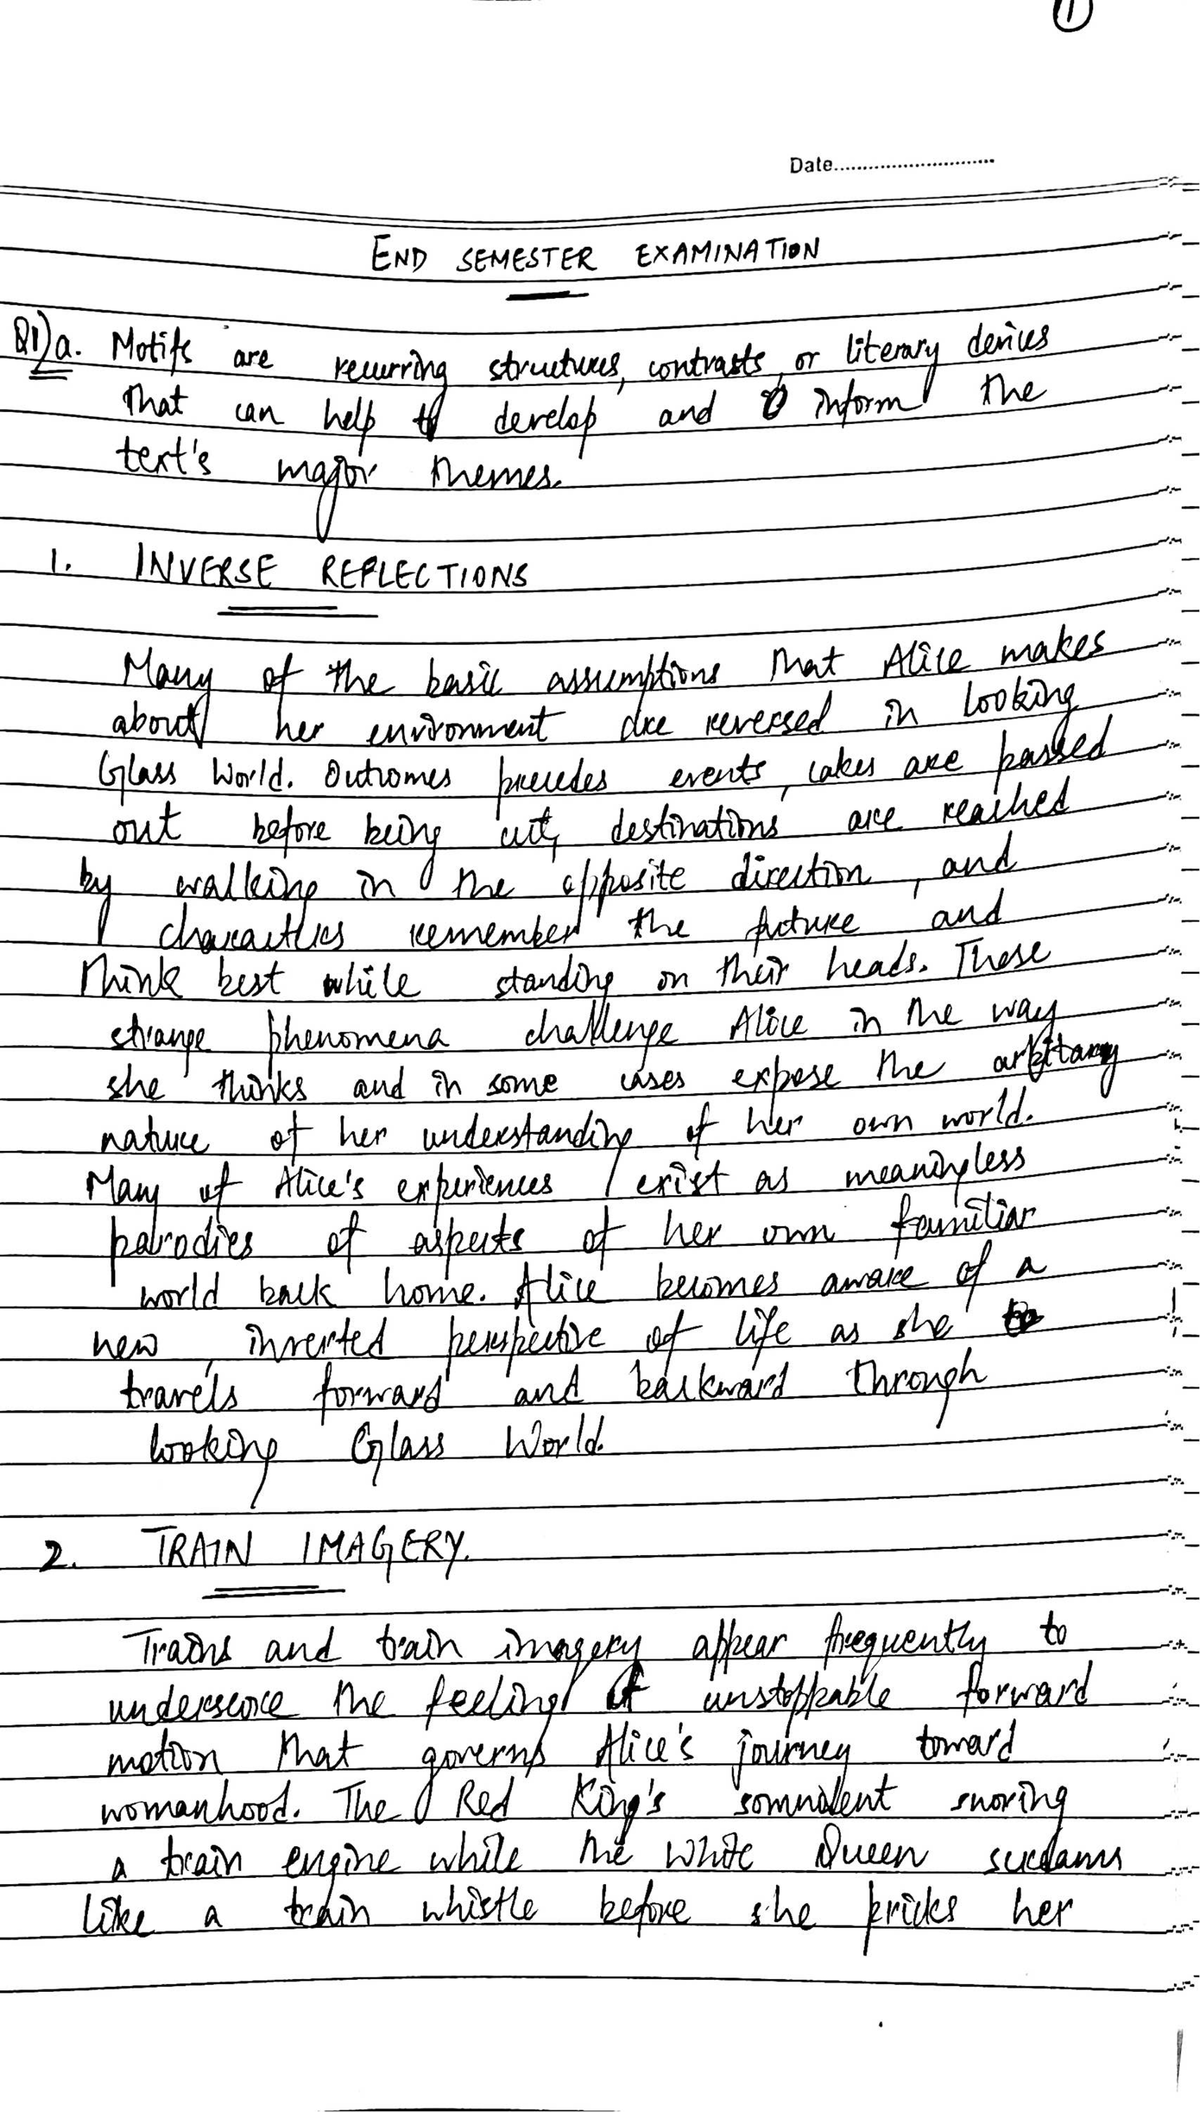 1
Date..............................
END SEMESTER EXAMINATION
Q1)a. Motifs are recurring structures, contrasts, or literary devices
that can help to develop and inform the
text's major themes.
1. INVERSE REFLECTIONS
Many of the basic assumptions that Alice makes
about her environment are reversed in Looking
Glass World. Outcomes precedes events, cakes are passed
out before being cut, destinations are reached
by walking in the opposite direction, and
characters remember the future and
think best while standing on their heads. These
strange phenomena challenge Alice in the way
she thinks and in some cases expose the arbitary
nature of her understanding of her own world.
Many of Alice's experiences exist as meaningless
parodies of aspects of her own familiar
world back home. Alice becomes aware of a
new, inverted perspective of life as she
travels forward and backward through
looking Glass World.
2. TRAIN IMAGERY.
Trains and train imagery appear frequently to
underscore the feeling of unstoppable forward
motion that governs Alice's journey toward
womanhood. The Red King's somnolent snoring
a train engine while the White Queen screams
like a train whistle before she pricks her